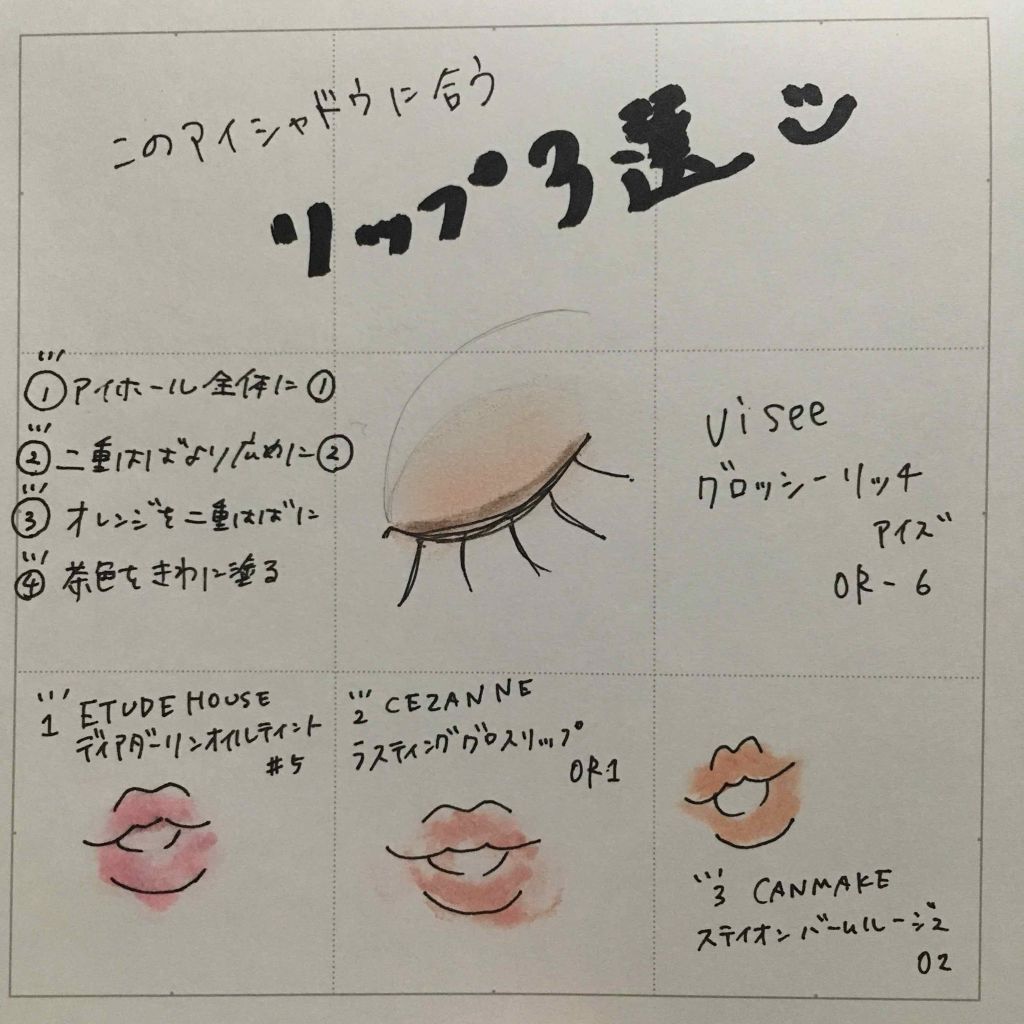 このアイシャドウに合う
リップ3選
① アイホール全体に①
② 二重はばより広めに②
③ オレンジを二重はばに
④ 茶色をきわに塗る
Visee
グロッシーリッチ
アイズ
OR-6
1 ETUDE HOUSE
ディアダーリンオイルティント
#5
2 CEZANNE
ラスティンググロスリップ
OR1
3 CANMAKE
ステイオンバームルージュ
02